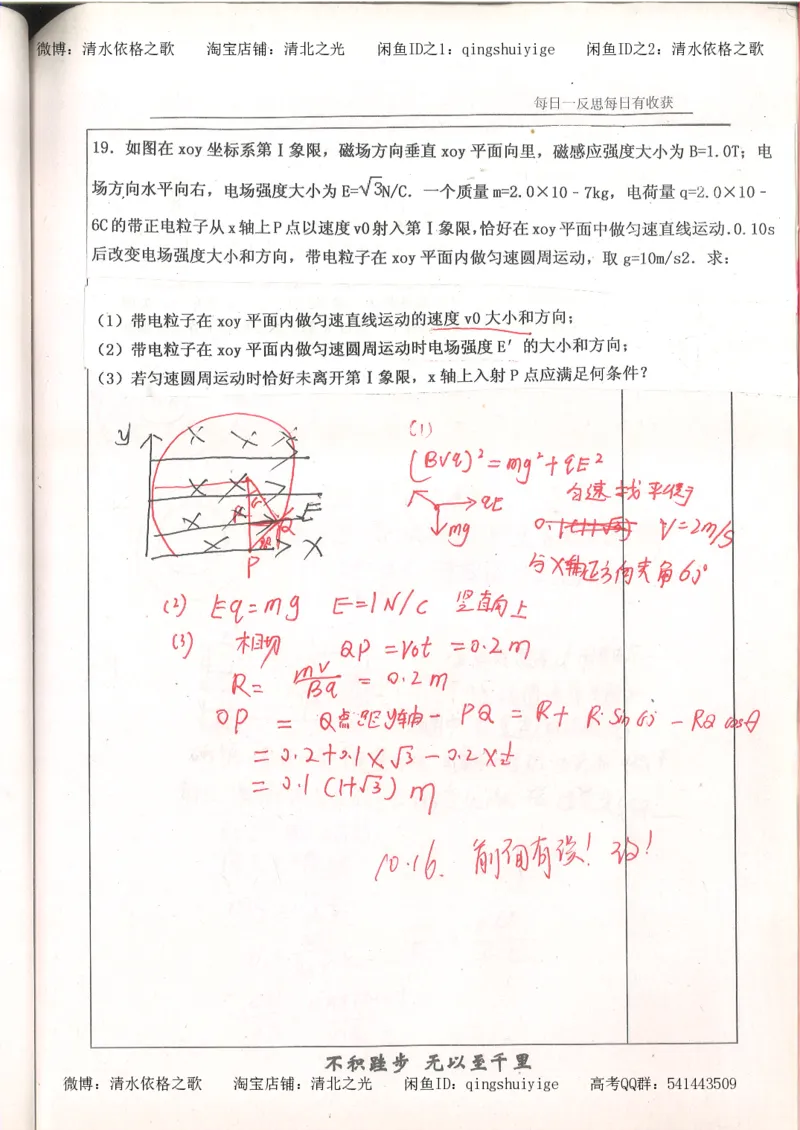 微博：清水依格之歌 淘宝店铺：清北之光 闲鱼ID之1：qingshuiyige 闲鱼ID之2：清水依格之歌
每日一反思每日有收获
19．如图在 xoy 坐标系第Ⅰ象限，磁场方向垂直 xoy 平面向里，磁感应强度大小为 B=1.0T；电
场方向水平向右，电场强度大小为 E=√3N/C．一个质量 m=2.0×10﹣7kg，电荷量 q=2.0×10﹣
6C的带正电粒子从x轴上P点以速度v0射入第Ⅰ象限,恰好在xoy平面中做匀速直线运动.0.10s
后改变电场强度大小和方向，带电粒子在 xoy 平面内做匀速圆周运动，取 g=10m/s2．求：
（1）带电粒子在 xoy 平面内做匀速直线运动的速度 v0 大小和方向；
（2）带电粒子在 xoy 平面内做匀速圆周运动时电场强度 E′ 的大小和方向；
（3）若匀速圆周运动时恰好未离开第Ⅰ象限，x 轴上入射 P 点应满足何条件？
y × × ×
× × R
× E
R Q
× X
P
(1)
(Bvq)²=mg²+qE²
qE 匀速
mg V=2m/s
与X轴正方向夹角60°
(2) Eq=mg E=1N/C 竖直向上
(3) 相切 QP=V0t=0.2m
R= mv/Bq = 0.2m
OP = Q点距y轴- PQ = R+ R·Sin60 - RQ cosθ
= 0.2+0.1×√3-0.2×½
= 0.1(1+√3) m
10.16. 前面有误!
不积跬步 无以至千里
微博：清水依格之歌 淘宝店铺：清北之光 闲鱼ID：qingshuiyige 高考QQ群：541443509